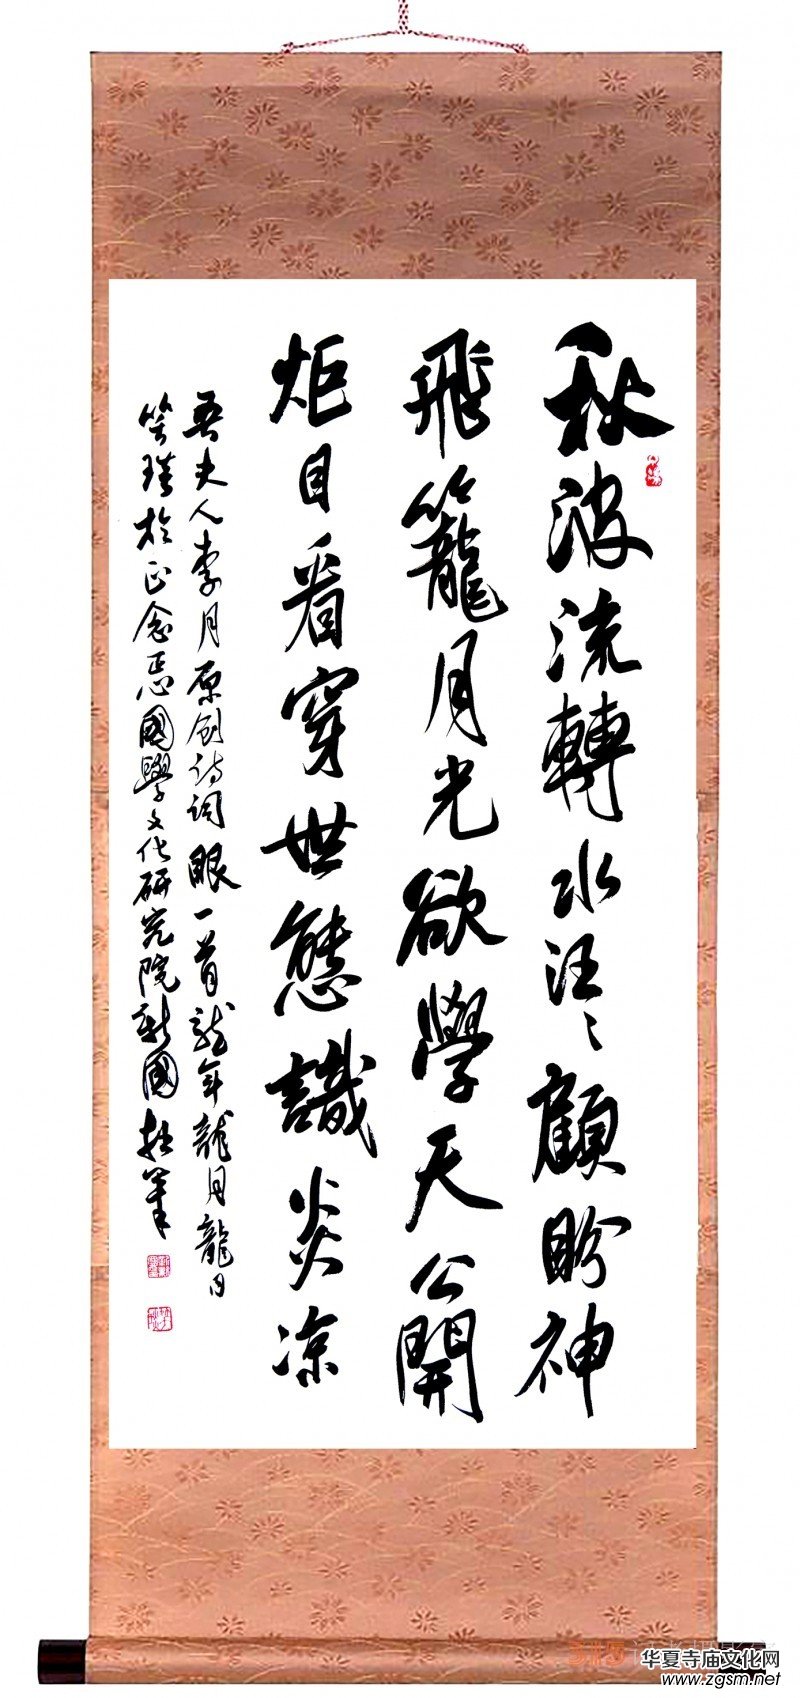 秋波流轉水汪〻顧盼神
飛籠月光欲學天公開
炬目看穿世態識炎凉
吾夫人李月原创诗词眼一首龍年龍月龍日
於正念國學文化研究院新國拙筆
华夏寺庙文化网
www.zgsm.net